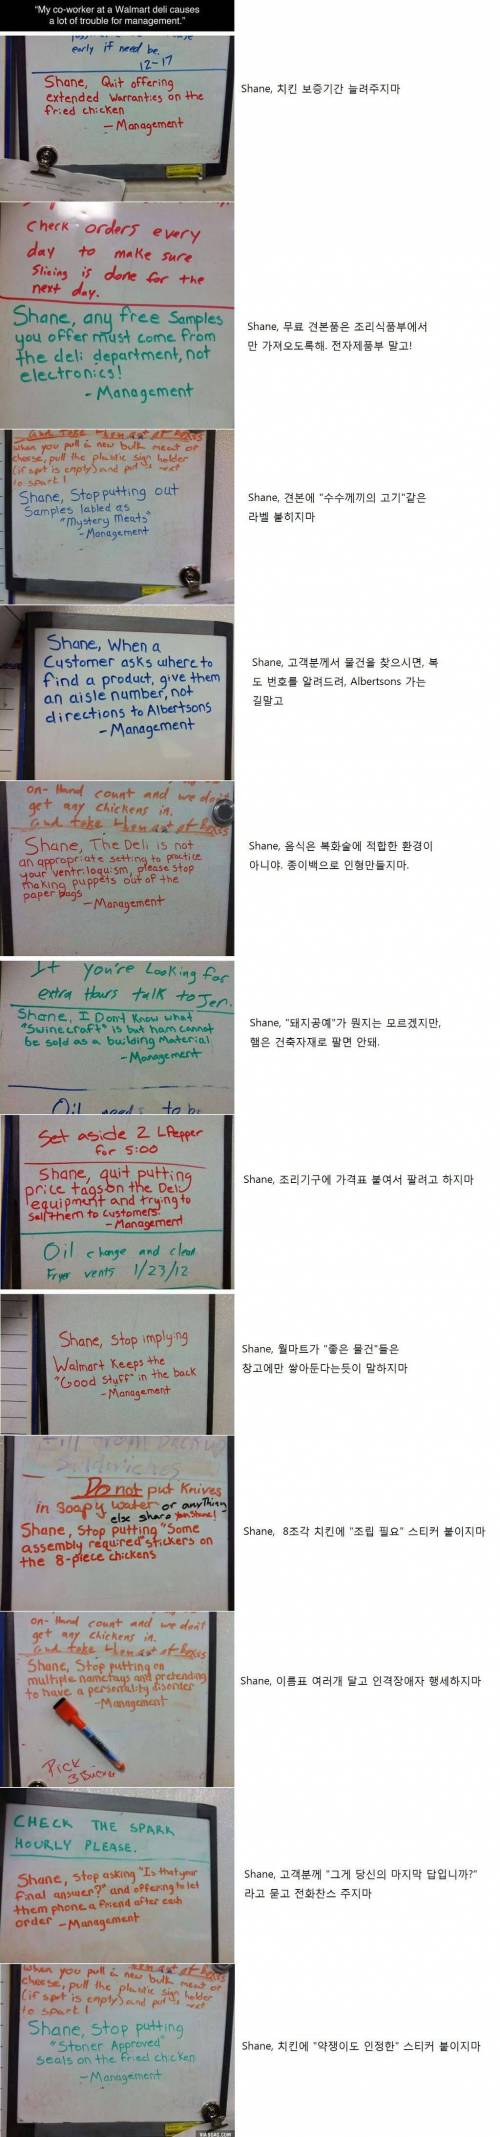 "My co-worker at a Walmart deli causes
a lot of trouble for management."
early if need be.
12-17
Shane, Quit offering
extended warranties on the
fried chicken
-Management
Shane, 치킨 보증기간 늘려주지마
check orders every
day to make sure
slicing is done for the
next day.
Shane, any free samples
you offer must come from
the deli department, not
electronics!
- Management
Shane, 무료 견본품은 조리식품부에서
만 가져오도록해. 전자제품부 말고!
and take them out of boxes
when you pull a new bulk meat or
cheese, pull the plastic sign holder
(if spot is empty) and put
to spart!
Shane, Stop putting out
Samples labled as
"Mystery Meats"
-Management
Shane, 견본에 "수수께끼의 고기"같은
라벨 붙히지마
Shane, When a
Customer asks where to
find a product, give them
an aisle number, not
directions to Albertsons
- Management
Shane, 고객분께서 물건을 찾으시면, 복
도 번호를 알려드려, Albertsons 가는
길말고
on-Hand count and we don't
get any chickens in.
and take them out of boxes
Shane, The Deli is not
an appropriate setting to practice
your ventriloquism, please stop
making puppets out of the
paper bags
-Management
Shane, 음식은 복화술에 적합한 환경이
아니야. 종이백으로 인형만들지마.
If you're Looking for
extra Hours talk to Jen.
Shane, I Don't Know what
"Swinecraft" is but ham cannot
be sold as a building Material
-Management
Oil needs to be
Shane, "돼지공예"가 뭔지는 모르겠지만,
햄은 건축자재로 팔면 안돼.
Set aside 2 LPepper
for 5:00
Shane, quit putting
price tags on the Deli
equipment and trying to
sell them to customers.
-Management
Oil change and clean
Fryer vents 1/23/12
Shane, 조리기구에 가격표 붙여서 팔려고 하지마
Shane, Stop implying
Walmart Keeps the
"Good Stuff" in the back
-Management
Shane, 월마트가 "좋은 물건"들은
창고에만 쌓아둔다는듯이 말하지마
Do not put Knives
in soapy water or anything
else sharp
Shane, Stop putting "Some
assembly required" stickers on
the 8-piece chickens
Shane, 8조각 치킨에 "조립 필요" 스티커 붙이지마
on-Hand count and we don't
get any chickens in.
and take them out of boxes
Shane, Stop putting on
multiple nametags and pretending
to have a personality disorder
-Management
Pick
Shane, 이름표 여러개 달고 인격장애자 행세하지마
CHECK THE SPARK
HOURLY PLEASE.
Shane, stop asking "Is that your
final answer?" and offering to let
them phone a friend after each
order -Management
Shane, 고객분께 "그게 당신의 마지막 답입니까?"
라고 묻고 전화찬스 주지마
when you pull a new bulk meat or
cheese, pull the plastic sign holder
(if spot is empty) and put
to spart!
Shane, Stop putting
"Stoner Approved"
seals on the fried chicken
-Management
Shane, 치킨에 "약쟁이도 인정한" 스티커 붙이지마
VIA 9GAG.COM